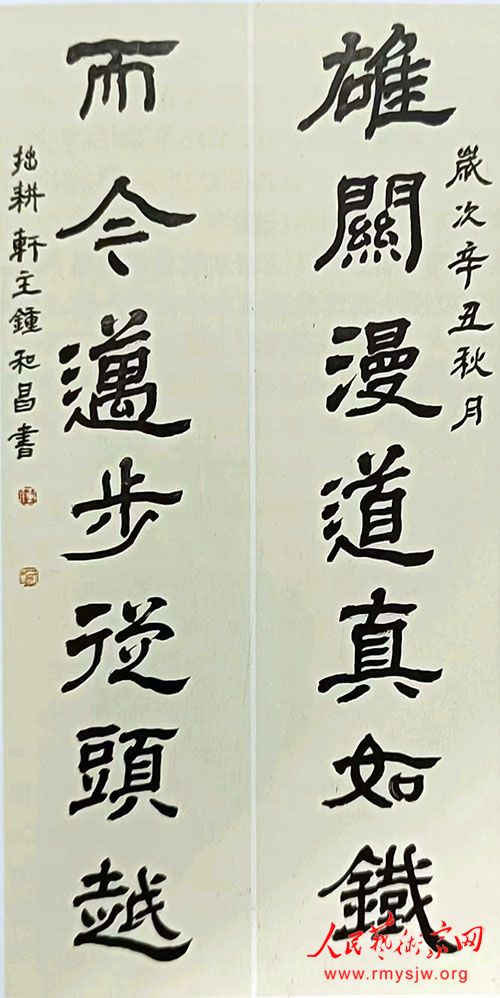 歲次辛丑秋月
雄關漫道真如鐵
而今邁步從頭越
拙耕軒主鍾和昌書
人民藝術家网
www.rmysjw.org